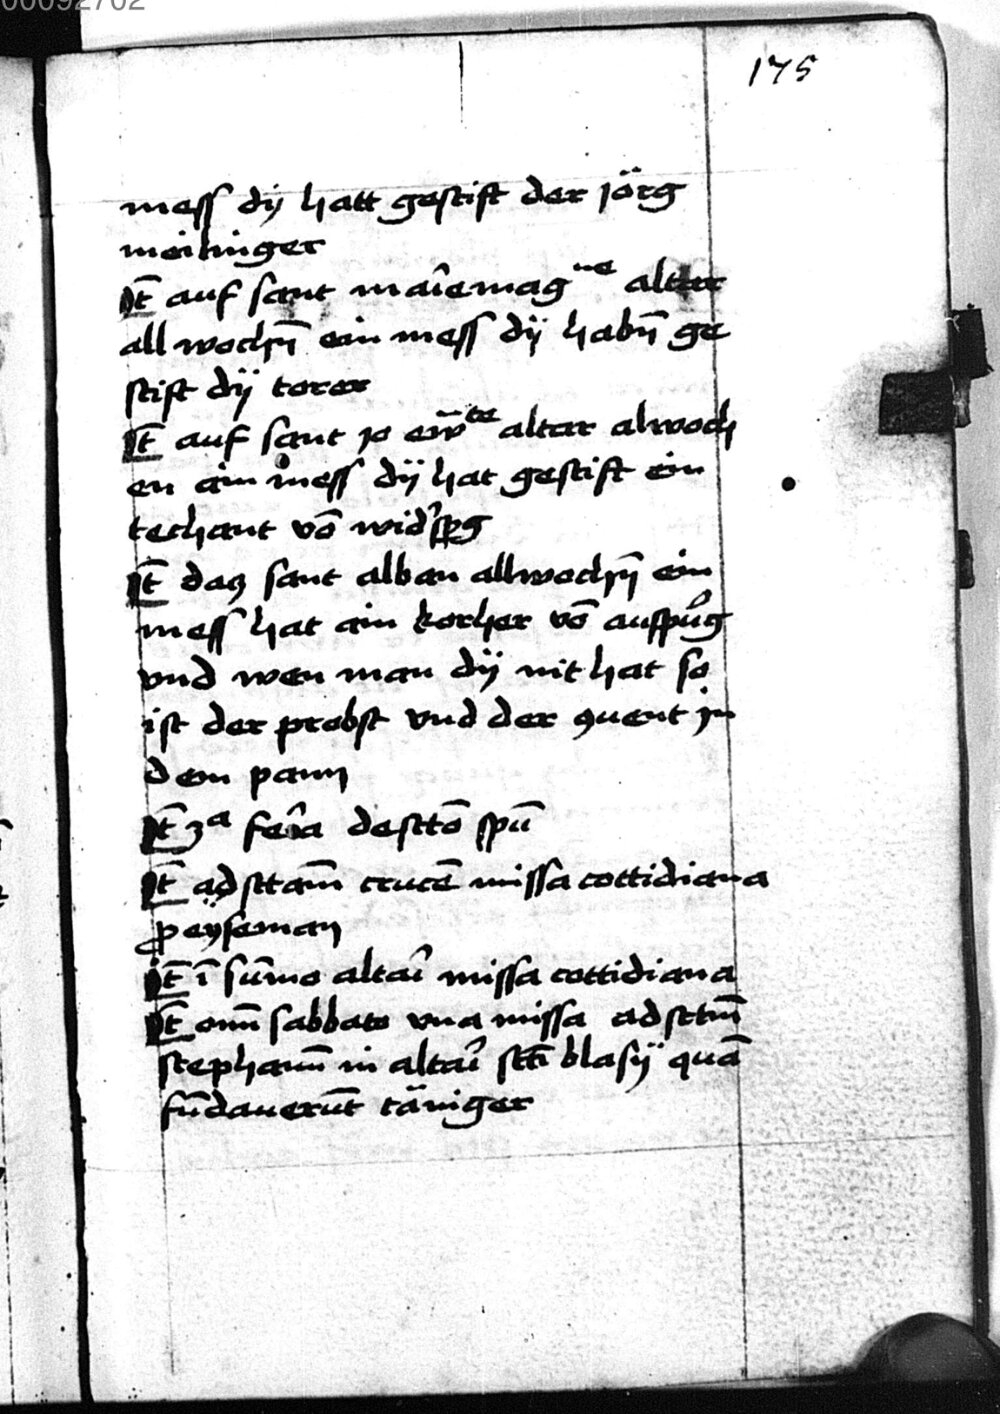 00092702
175
mess dÿ hatt gestift der Jörg
meilinger
It̄ auf sant mar̂iemag ͫͤ altar
all wochn̄ ein mess dÿ habn̄ ge
stift dÿ torer
It̄ auf sant Jo ew̄ ͭͤ altar alwoch
en ain mess dÿ hat gestift ein
techant vō
It̄ daz sant alban allwochn̄ ein
mess hat ain korher vō auspurg
vnd wen man dÿ nit hat so
ist der probst vnd der quent in
dem pann
It̄ 3ᵃ fer̂ia de sctō spū
It̄ ad sctam̄ crucē missa cottidiana
ꝑ eÿseman
It̄ ī sūmo altar̂i missa cottidiana
It̄ omī sabbato vna missa ad sctm̄
stephanū in altar̂i sctī blasÿ quā
fūdauerūt täniger